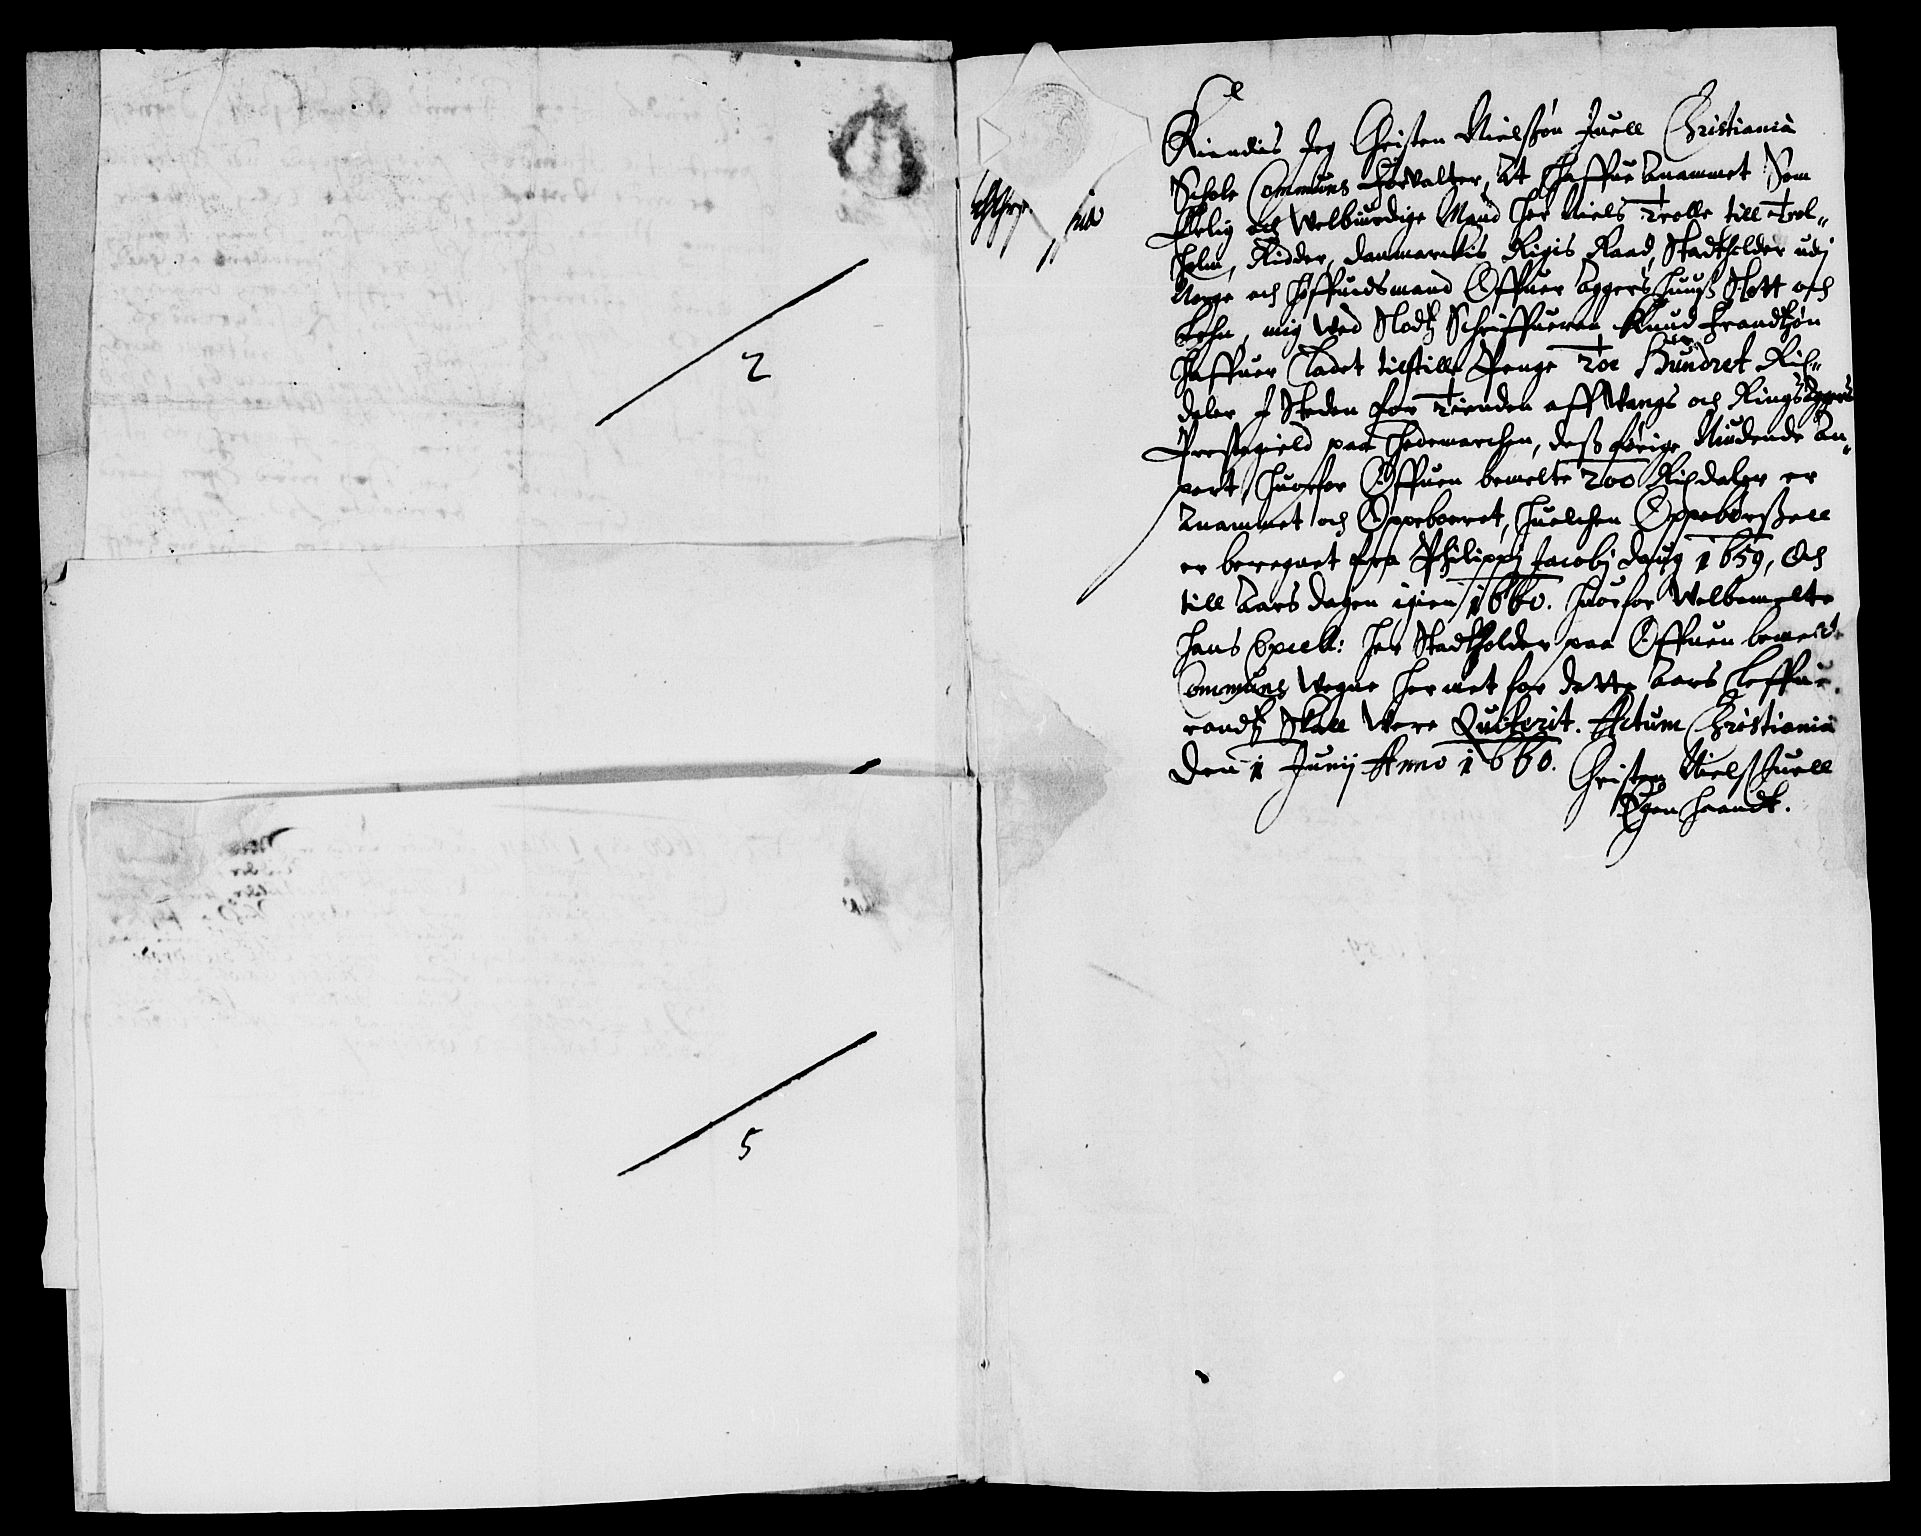 2
5
Kiendis Jeg Christen Nielszøn Juell Christiania
Schole Communs Forvalter, At Haffue Anammet Som
Erlig och Welbiurdige Mand Her Niels Trolle till Trol-
holm, Ridder, Danmarckis Rigis Raad, Stadtholder udj
Norge och Høffuidsmand Offuer Aggershuusz Slott och
Lehn, mig Wed Slodtz Schriffueren Knud Frandtzøn
Haffuer Ladet tilstille Penge Toe Hundret Rix-
daler J Steden for Tienden aff Wangs och Ringsaggers
Prestegield paa Hedemarchen, desz forige Niudende An-
part, Huorfor Offuen bemelte 200 Rixdaler er
Anammet och Oppeboeret, Huelchen Oppebørszell
er beregnet fra Philippj Jacobj daug 1659, Och
till Aars dagen igien 1660. Huorfor Welbemelte
Hans Excell: Her Stadtholder paa Offuen bemelte
Communs Wegne Hermet for dette Aars Leffue-
randtz Skall Were Quiterit. Actum Christiania
Den 1 Junij Anno 1660.
Christen Niels Juell
Egen Haandt.